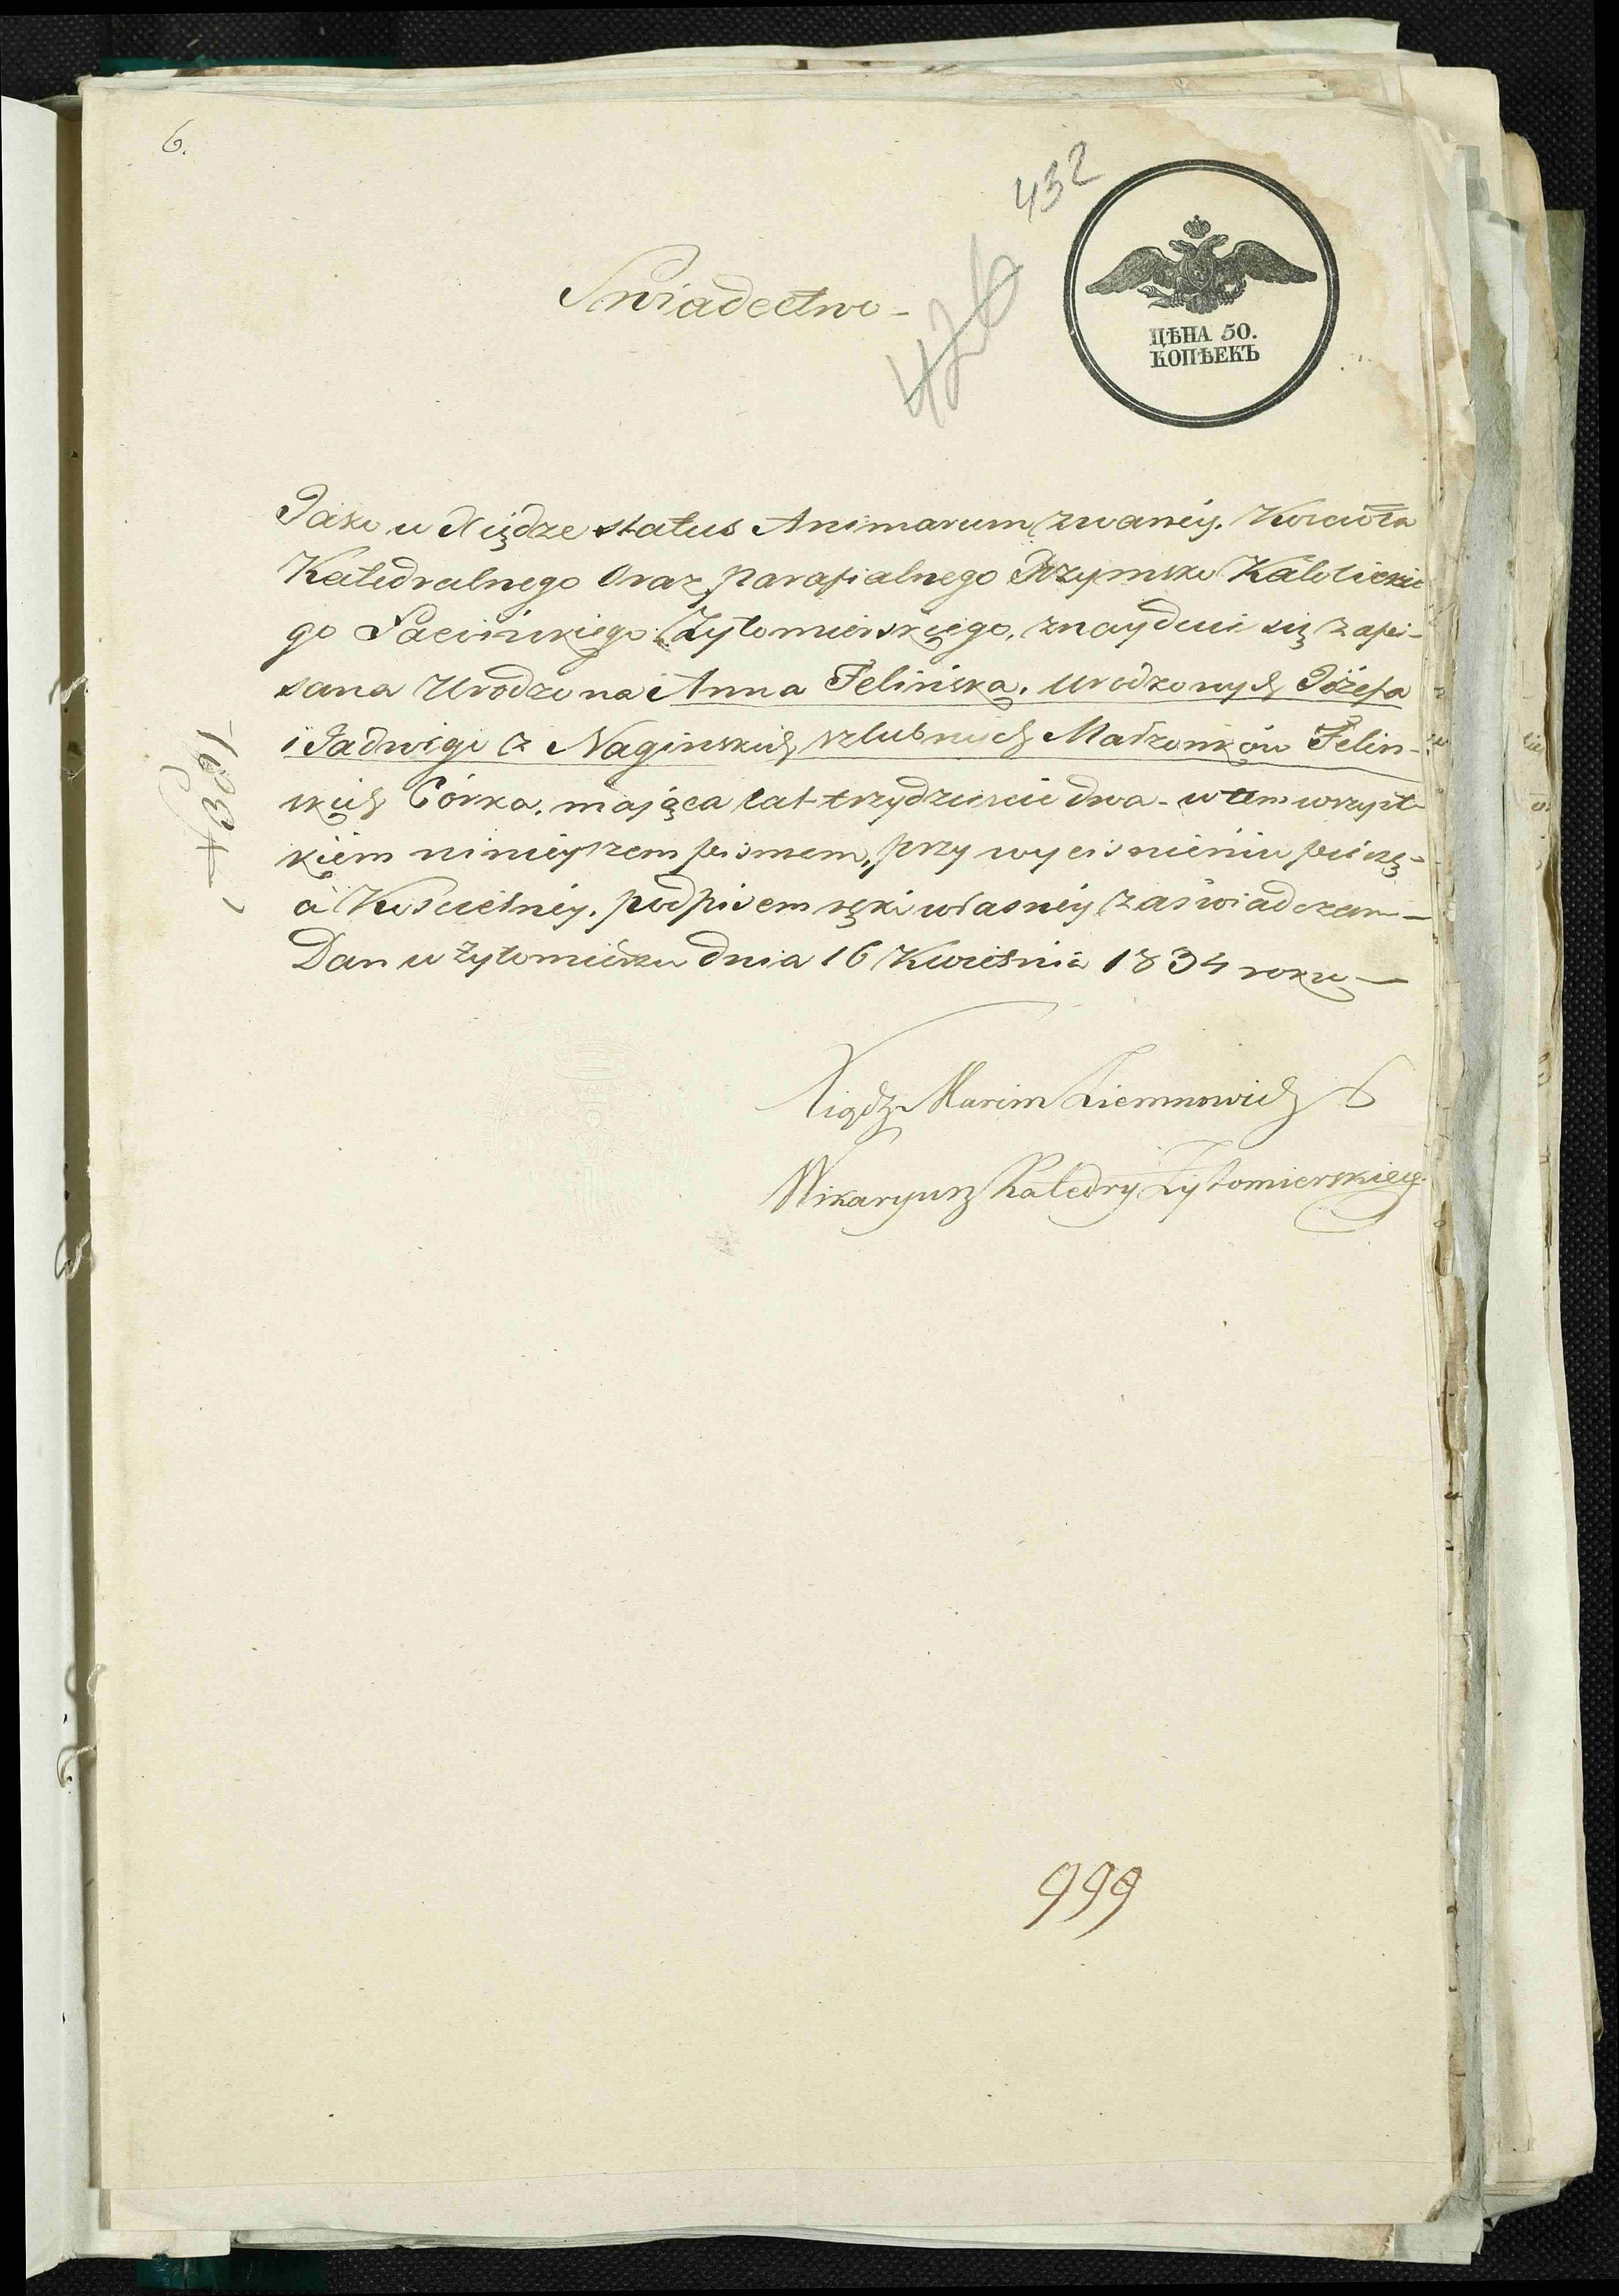 6.
432
426
Swiadectwo -
ЦѢНА 50.
КОПѢЕКЪ
Jako w Xiędze status Animarum zwaney. Kościoła
Katedralnego Oraz parafialnego Rzymsko Katolickie
go Łacińskiego Żytomierskiego, znayduie się zapi-
sana Urodzona Anna Felińska. urodzonych Józefa
i Jadwigi z Nagińskich, szlubnych Małżonków Feliń-
skich Córka. maiąca lat trzydzieście dwa - w tem wszyst-
kiem ninieyszem pismem, przy wyciśnieniu pieczę-
ci Kościelney. podpisem ręki własney zaświadczam -
Dan w Żytomierzu dnia 16 Kwietnia 1834 roku -
1834
Xiądz Marcin Ziemnowicz
Wikaryusz Katedry Żytomierskiey.
999